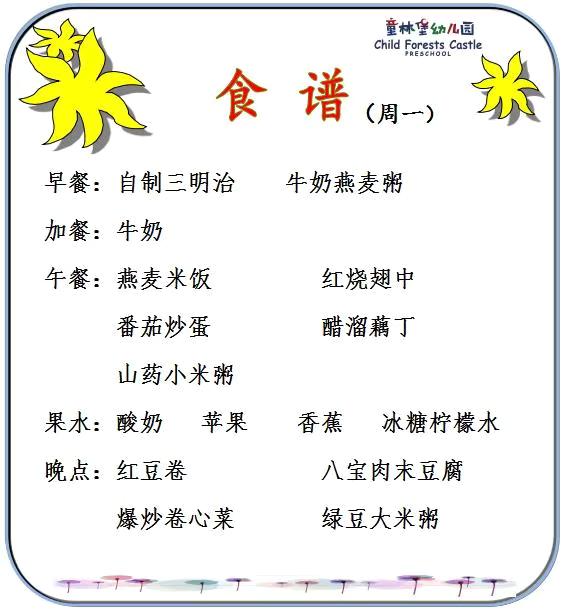 童林堡幼儿园
Child Forests Castle
PRESCHOOL
食 谱 (周一)
早餐: 自制三明治 牛奶燕麦粥
加餐: 牛奶
午餐: 燕麦米饭 红烧翅中
番茄炒蛋 醋溜藕丁
山药小米粥
果水: 酸奶 苹果 香蕉 冰糖柠檬水
晚点: 红豆卷 八宝肉末豆腐
爆炒卷心菜 绿豆大米粥